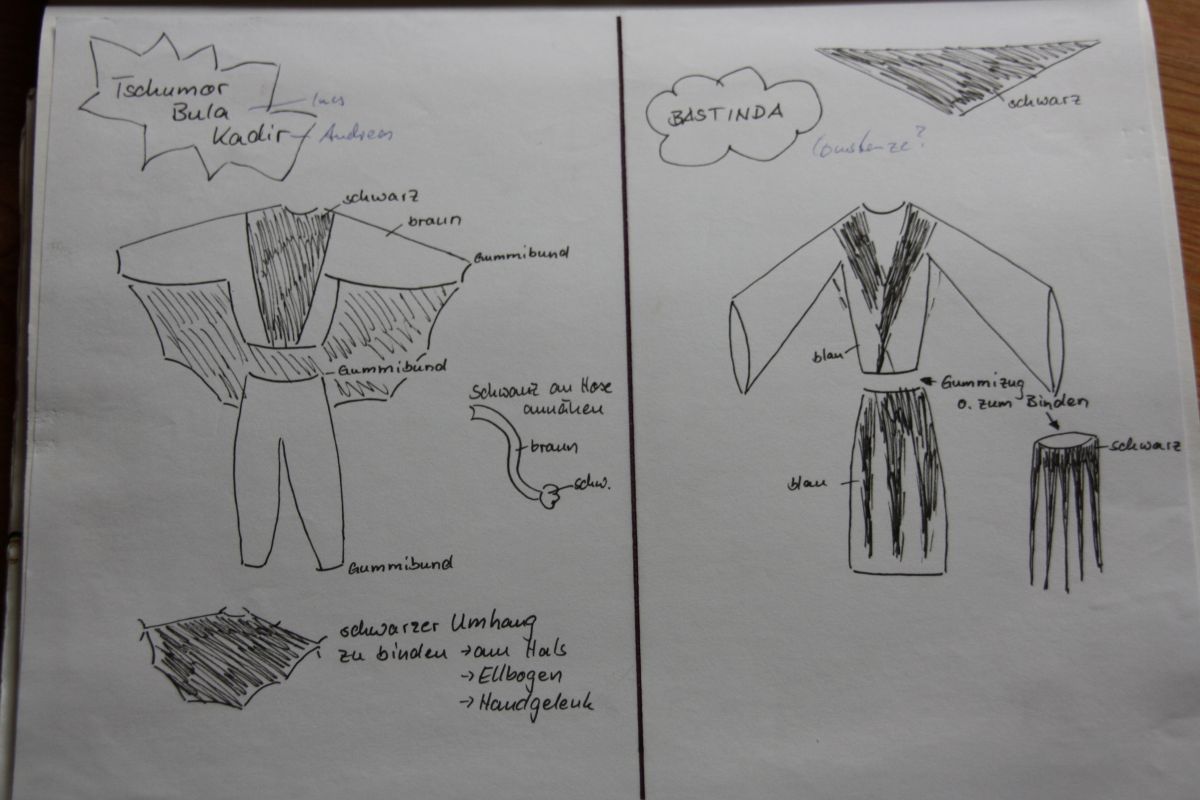 Tschumor
Bula
Kadir
Ines
Andreas
schwarz
braun
Gummibund
Gummibund
Schwanz an Hose
annähen
braun
schw.
Gummibund
schwarzer Umhang
zu binden → am Hals
→ Ellbogen
→ Handgelenk
schwarz
BASTINDA
Constanze?
blau
Gummizug
o. zum Binden
schwarz
blau